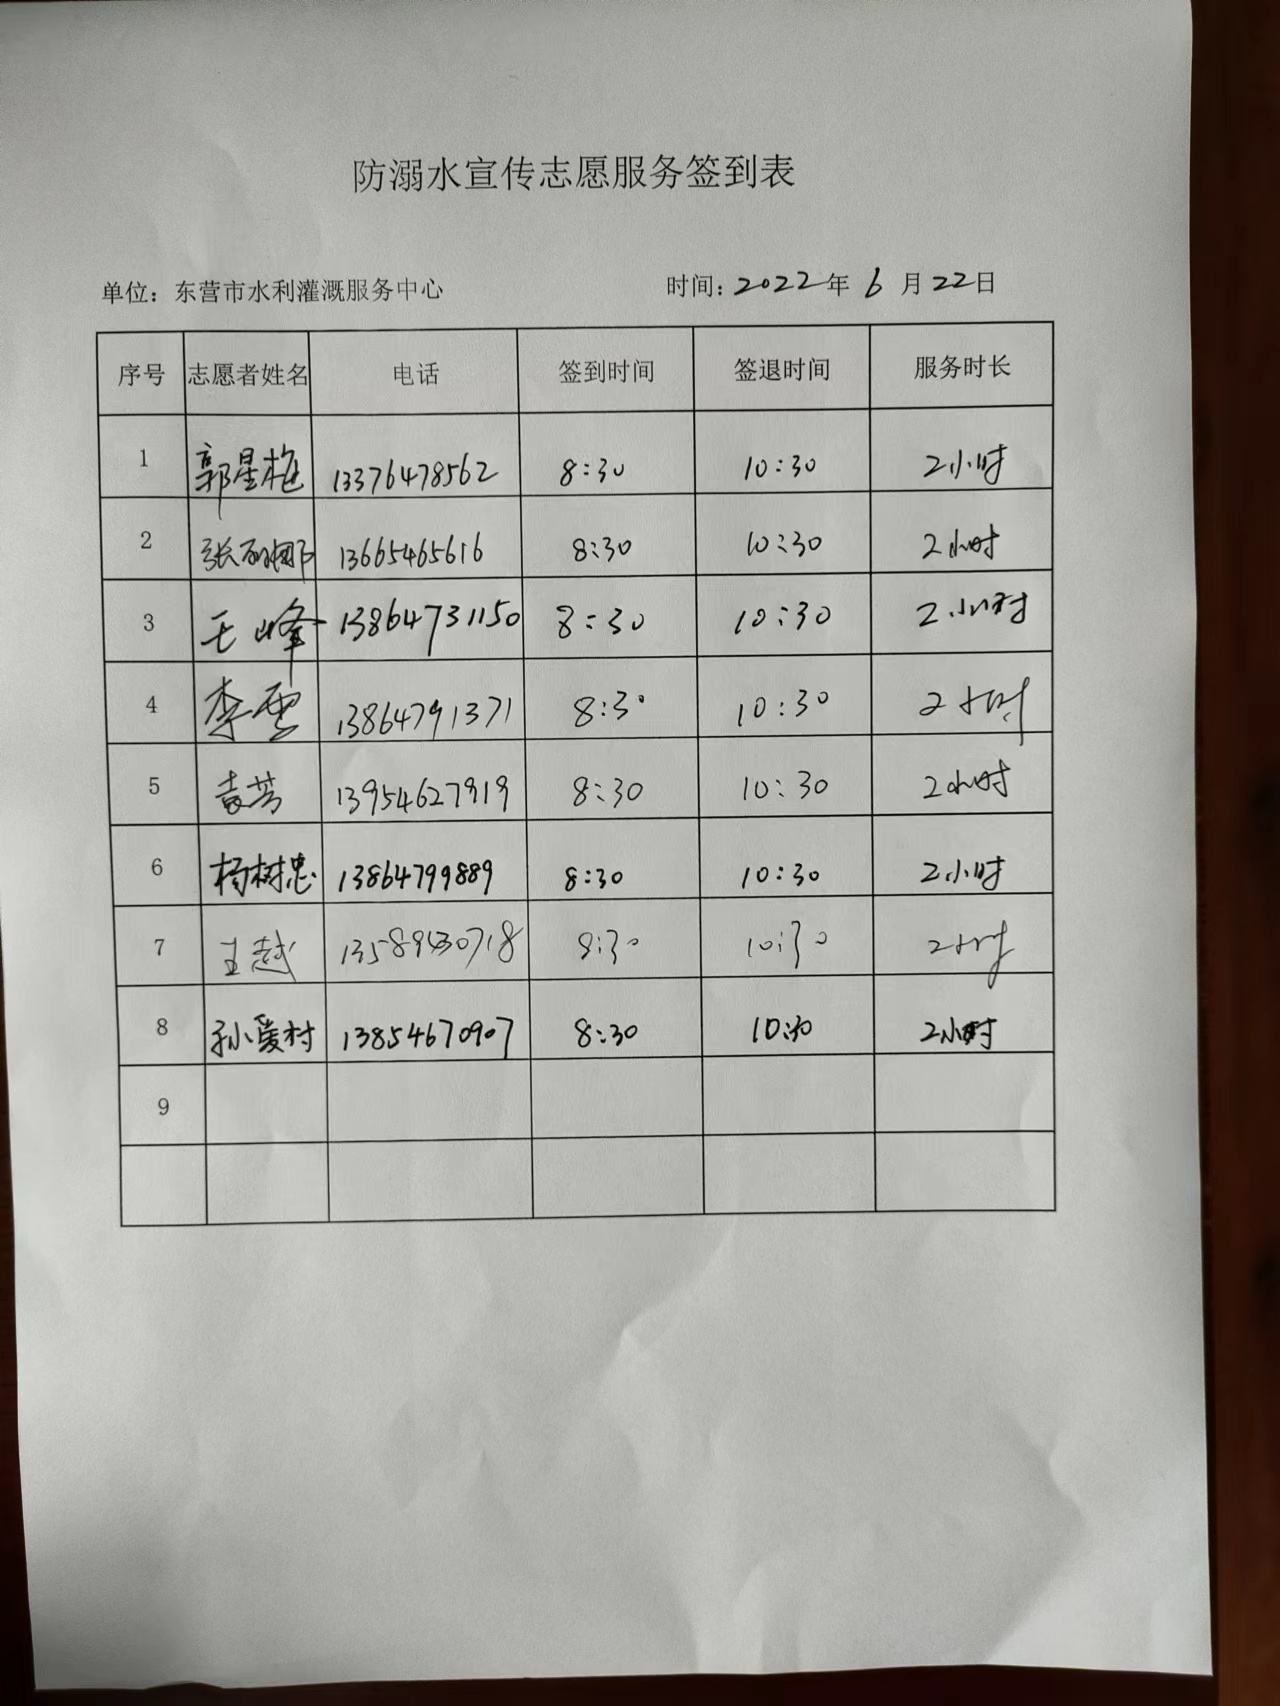 防溺水宣传志愿服务签到表
单位：东营市水利灌溉服务中心 时间：2022年6月22日
序号 志愿者姓名 电话 签到时间 签退时间 服务时长
1 郭星梅 13376478562 8:30 10:30 2小时
2 张丽娜 13665465616 8:30 10:30 2小时
3 王峰 13864731150 8:30 10:30 2小时
4 李雪 13864791371 8:30 10:30 2小时
5 袁芳 13954627919 8:30 10:30 2小时
6 杨树忠 13864799889 8:30 10:30 2小时
7 王越 8:30 10:30 2小时
8 孙爱村 13854670907 8:30 10:30 2小时
9